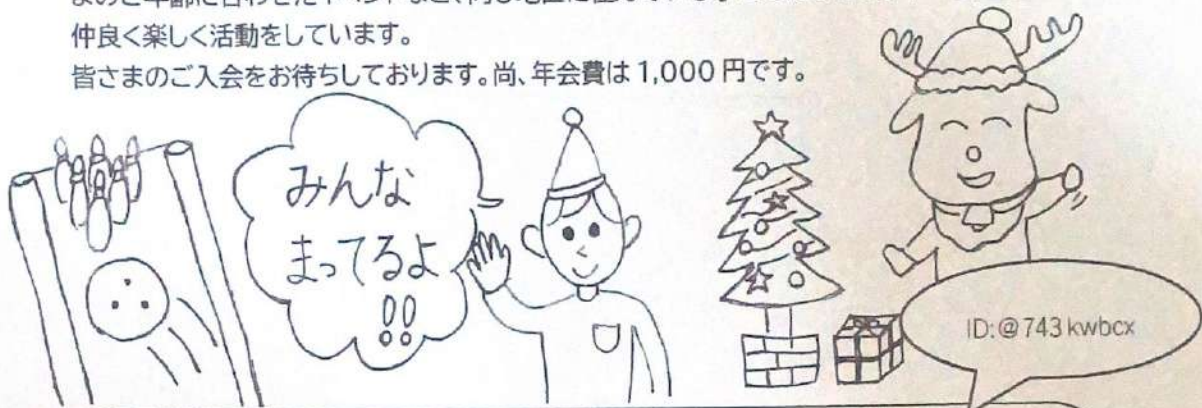 仲良く楽しく活動をしています。
皆さまのご入会をお待ちしております。尚、年会費は 1,000 円です。
みんな
まってるよ
!!
ID:@743kwbcx